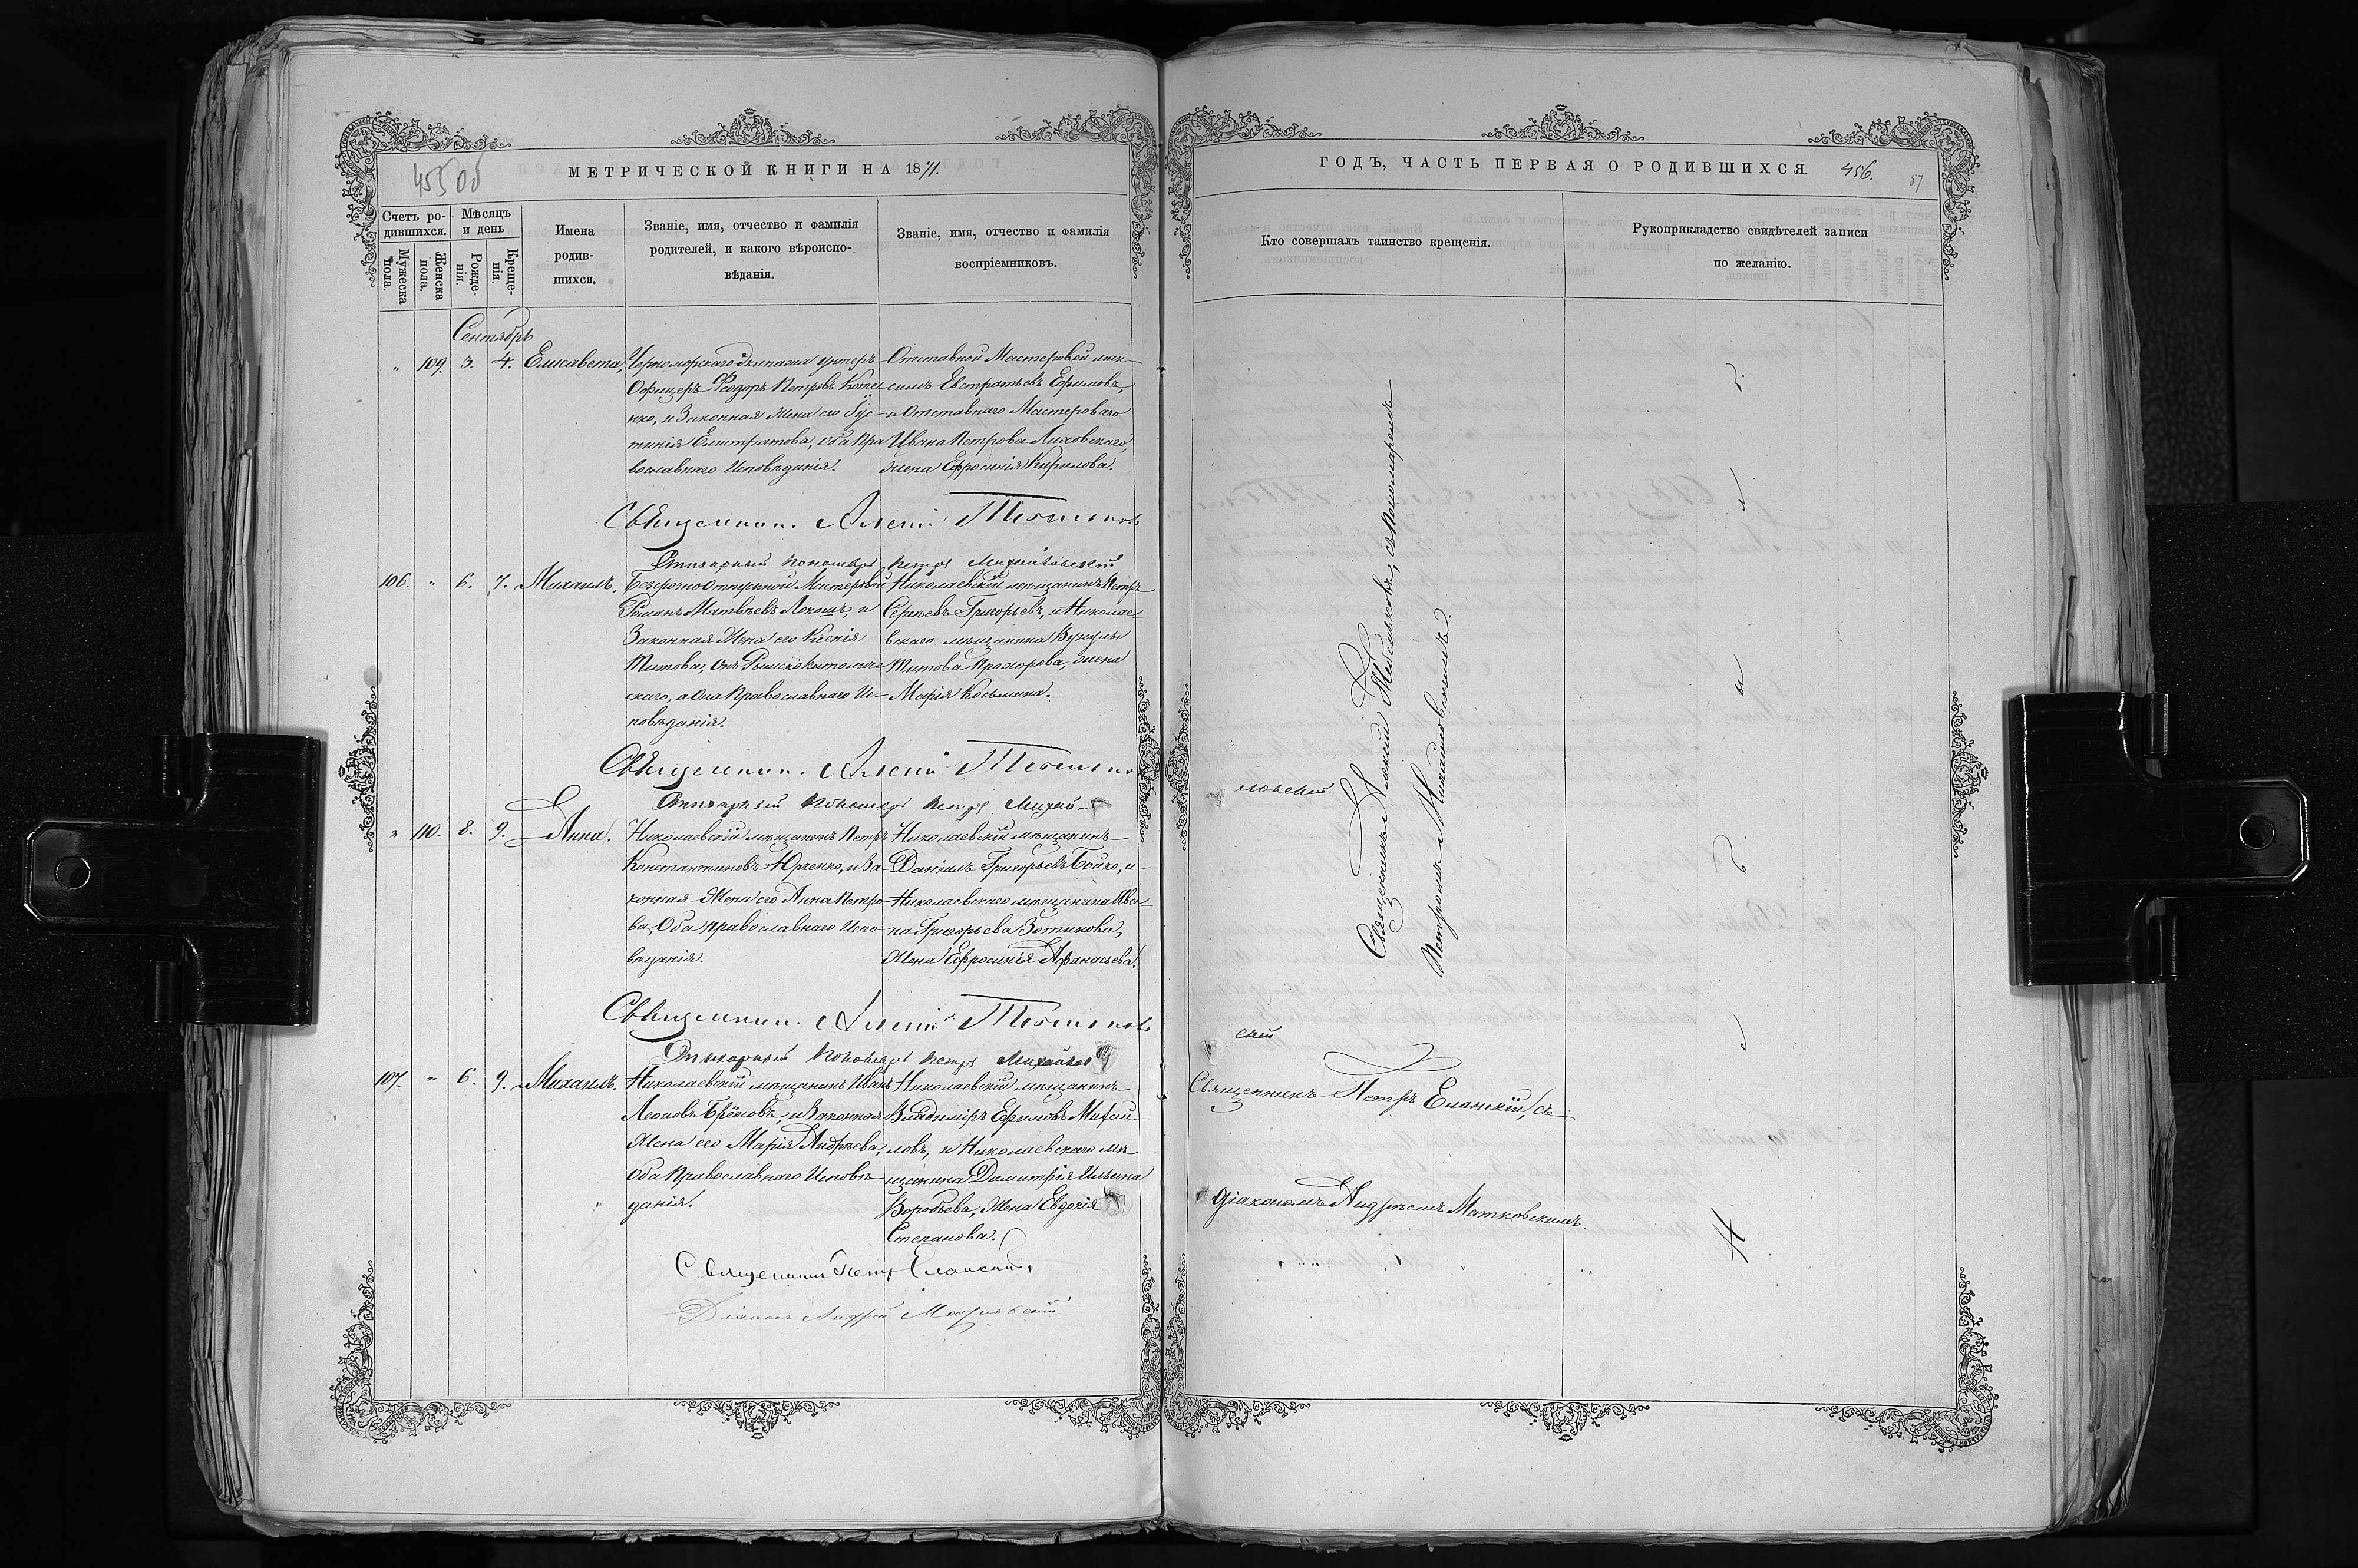 455 об
МЕТРИЧЕСКОЙ КНИГИ НА 1871.
Счетъ ро-
дившихся.
Мѣсяцъ
и день
Мужеска
пола.
Женска
пола.
Рожде-
нія.
Креще-
нія.
Имена
родив-
шихся.
Званіе, имя, отчество и фамилія
родителей, и какого вѣроиспо-
вѣданія.
Званіе, имя, отчество и фамилія
воспріемниковъ.
Сентябрь
" 109. 3. 4. Елисавета,
Черноморскаго Экипажа Унтеръ
Офицеръ Ѳеодоръ Петровъ
нко, и Законная Жена его Іус-
тинія Елистратова, оба Пра
вославнаго Исповѣданія.
Отставной Мастеровой Мак-
симъ Евстратьевъ Ефимовъ,
и Отставнаго Мастероваго
Ивана Петрова Лиховскаго,
жена Ефросинія Кирилова.
Священник. Алексій
Стихарный Пономарь Петръ Михайловскій
106. " 6. 7. Михаилъ.
Безсрочноотпускной Мастеровой
Романъ Матвѣевъ и
Законная Жена его Ксенія
Титова, Онъ Римскокатоличе
скаго, а Она Православнаго Ис-
повѣданія.
Николаевскій мѣщанинъ Петръ
Сергѣевъ Григорьевъ, и Николае
вскаго мѣщанина Вукулы
Титова Прохорова, жена
Марія Косьмина.
Священник. Алексій
Стихарный Пономарь Петръ Михай-
" 110. 8. 9. Анна.
Николаевскій мѣщанинъ Петръ
Константиновъ Юрченко, и За
конная Жена его Анна Петро
ва, Оба Православнаго Испо
вѣданія.
Николаевскій мѣщанинъ
Даніилъ Григорьевъ Бойко, и
Николаевскаго мѣщанина Ива-
на Григорьева Зотикова,
Жена Ефросинія Афанасьева.
Священник. Алексій
Стихарный Пономарь Петръ Михайлов
107. " 6. 9. Михаилъ.
Николаевскій мѣщанинъ Иванъ
Леоновъ и Законная
Жена его Марія Андрѣева,
Оба Православнаго Исповѣ
данія.
Николаевскій мѣщанинъ
Владиміръ Ефимовъ Михай-
ловъ, и Николаевскаго мѣ
щанина Димитрія Ильина
Воробьева, Жена Евдокія
Степанова.
Священник Петръ Еланскій,
Діаконъ Андрей
ГОДЪ, ЧАСТЬ ПЕРВАЯ О РОДИВШИХСЯ. 456.
57
Кто совершалъ таинство крещенія.
Рукоприкладство свидѣтелей записи
по желанію.
Священникъ Алексій съ Пономаремъ
Петромъ Михайловскимъ.
ловскій
скій
Священникъ Петръ Еланскій, съ
Діакономъ Андреемъ Матковскимъ.